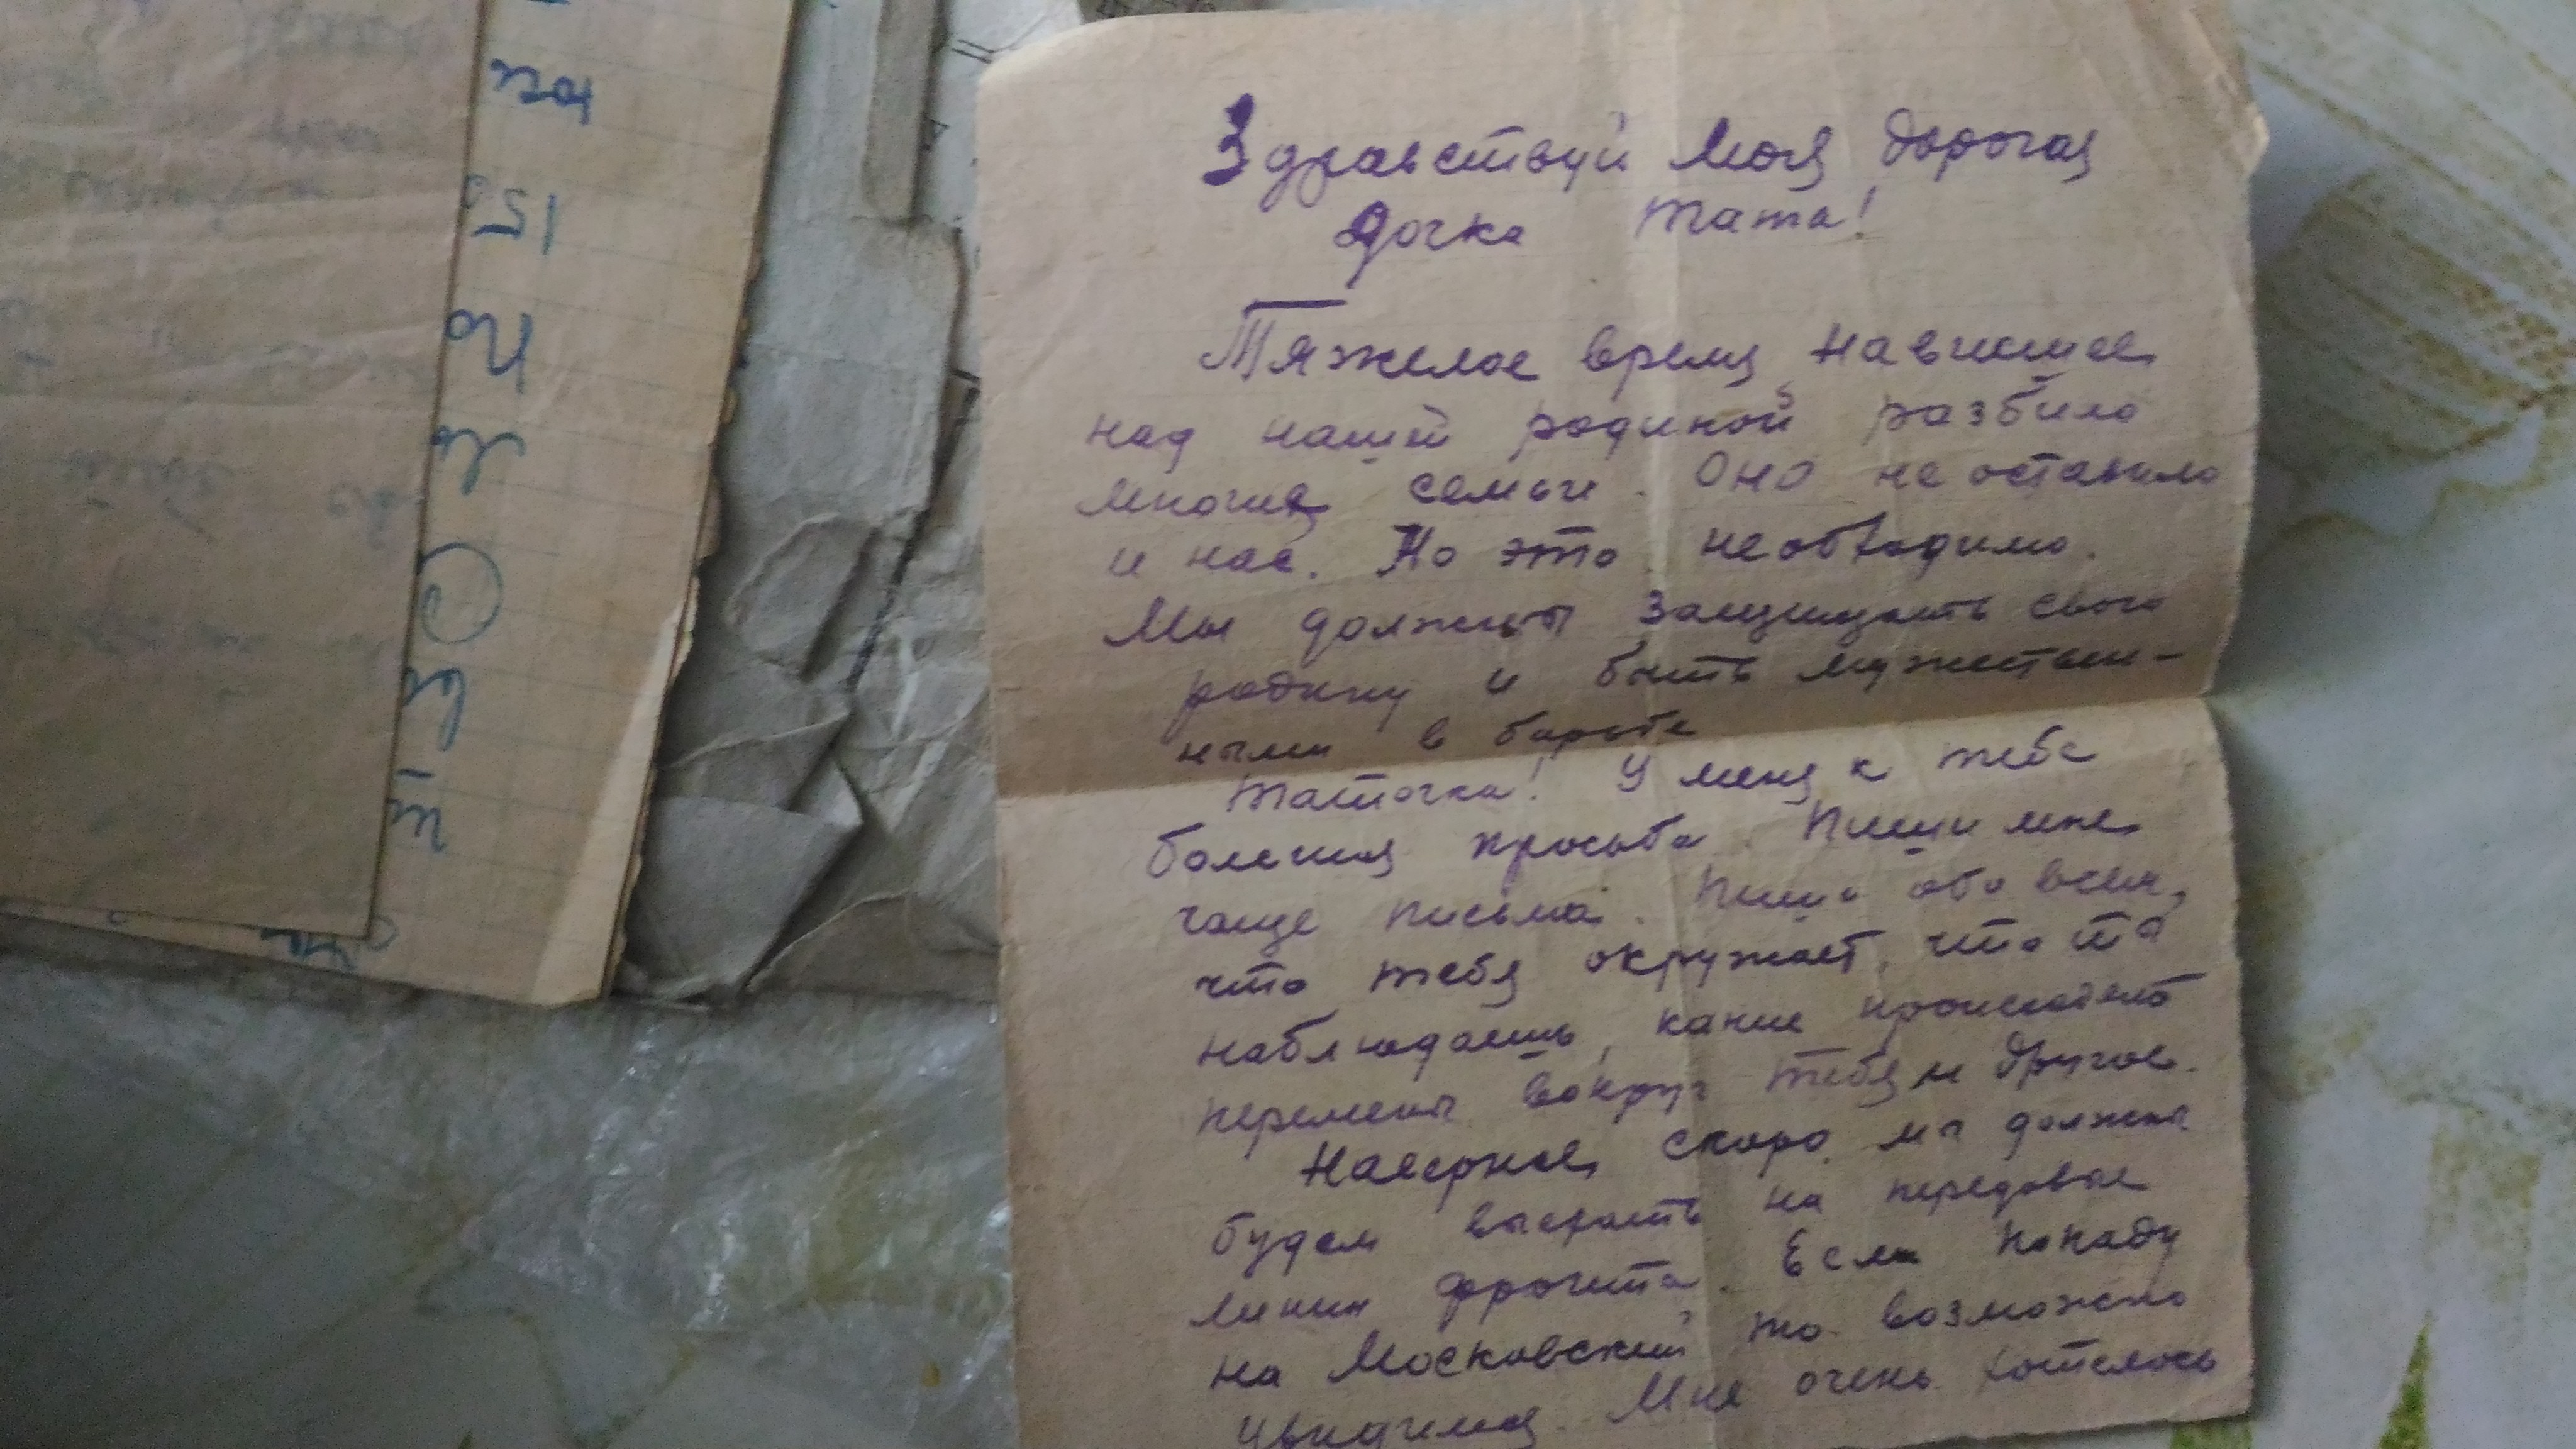 Здравствуй Моя дорогая
Дочка Тата!
Тяжелое время нависшее
над нашей родиной разбило
многие семьи. Оно не оставило
и нас. Но это необходимо.
Мы должны защищать свою
родину и быть мужествен-
ными в борьбе
Таточка! У меня к тебе
большая просьба. Пиши мне
чаще письма. Пиши обо всем,
что тебя окружает, что ты
наблюдаешь, какие происходят
перемены вокруг тебя и другое.
Наверное скоро мы должны
будем выехать на передовые
линии фронта. Если попаду
на Московский то возможно
увидимся. Мне очень хотелось